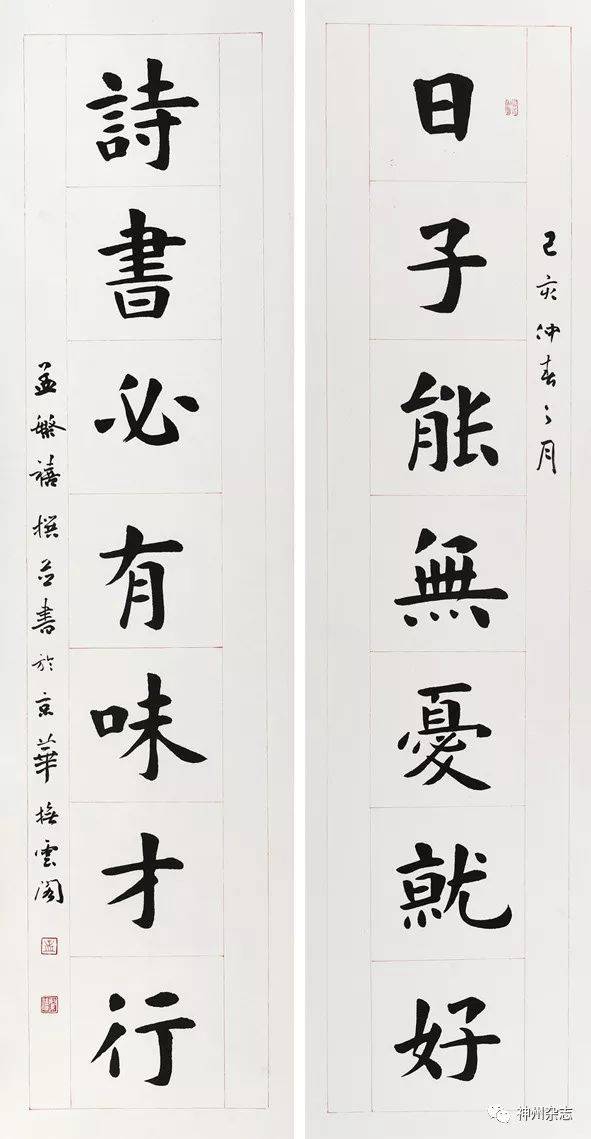 己亥仲春之月
日子能無憂就好
詩書必有味才行
孟繁禧撰并書於京華撫雲閣
神州杂志